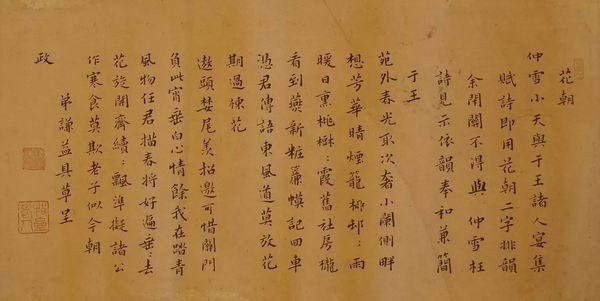 花朝
仲雪小天與于王諸人宴集
賦詩即用花朝二字排韻
余閉關不得與仲雪枉
詩見示依韻奉和兼簡
于王
苑外春光取次奢小闌側畔
想芳華晴煙籠柳邨〻雨
暖日熏桃樹〻霞舊社房櫳
看到燕新粧簾幙記回車
憑君傳語東風道莫放花
期過楝花
遨頭婪尾羡招邀可惜關門
負此宵垂白心情餘我在踏青
風物任君描春將好遍垂〻去
花旋開齋續〻飄準擬諸公
作寒食莫欺老子似今朝
弟謙益具草呈
政